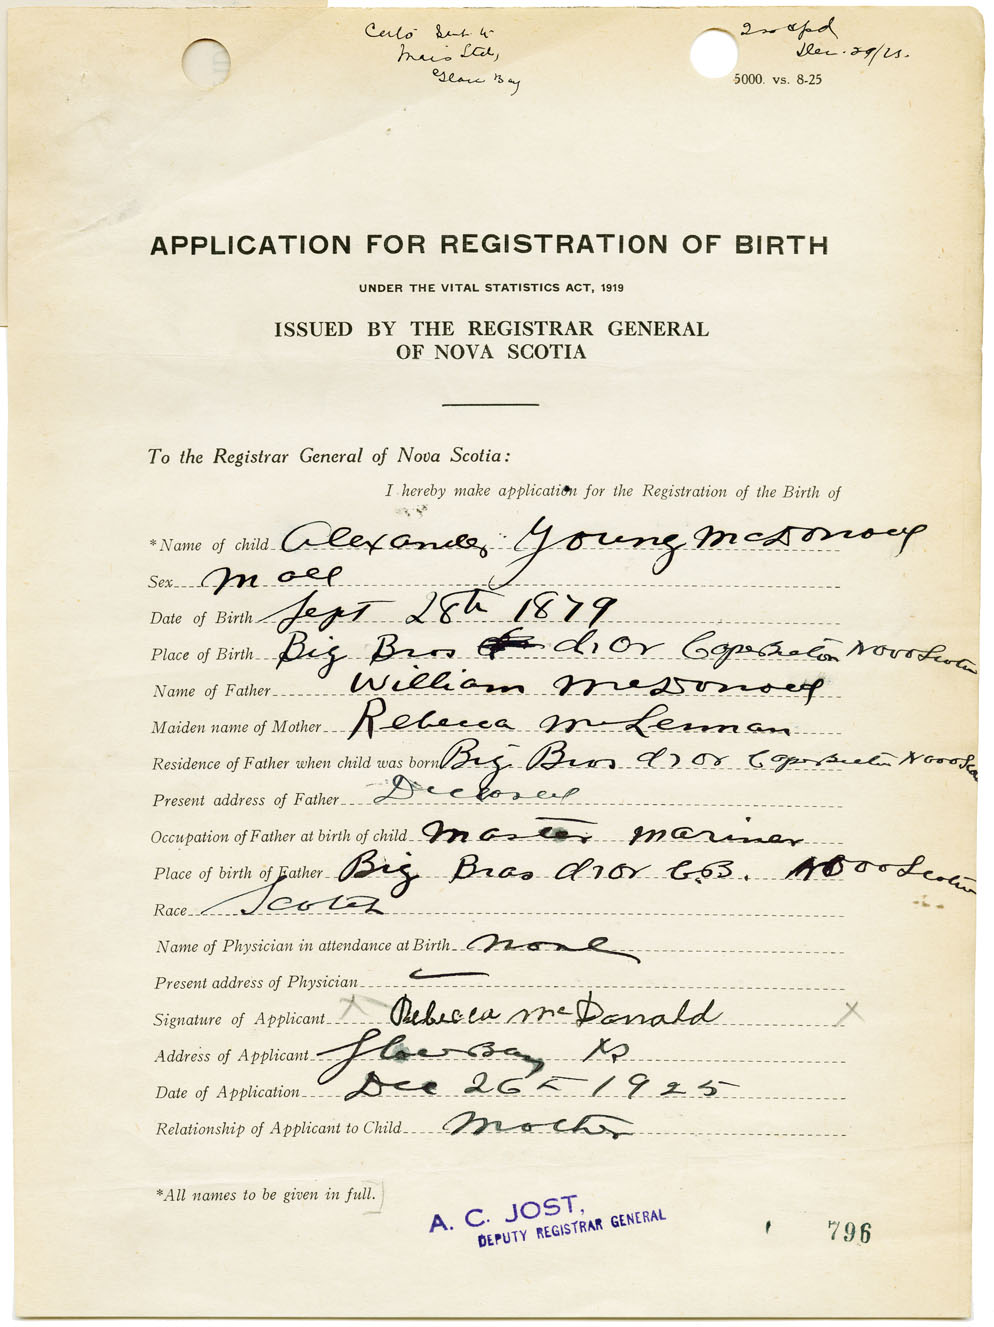 Main Std,
Glace Bay
Dec. 29/25.
5000. vs. 8-25
APPLICATION FOR REGISTRATION OF BIRTH
UNDER THE VITAL STATISTICS ACT, 1919
ISSUED BY THE REGISTRAR GENERAL
OF NOVA SCOTIA
To the Registrar General of Nova Scotia:
I hereby make application for the Registration of the Birth of
*Name of child Alexander Young McDonald
Sex Male
Date of Birth Sept 28th 1879
Place of Birth Big Bras d'or Cape Breton Nova Scotia
Name of Father William McDonald
Maiden name of Mother Rebecca McLennan
Residence of Father when child was born Big Bras d'or Cape Breton Nova Sco
Present address of Father Deceased
Occupation of Father at birth of child Master mariner
Place of birth of Father Big Bras d'or C.B. Nova Scotia
Race Scotch
Name of Physician in attendance at Birth none
Present address of Physician —
Signature of Applicant X Rebecca McDonald X
Address of Applicant Glace Bay NS
Date of Application Dec 26th 1925
Relationship of Applicant to Child Mother
*All names to be given in full.
A. C. JOST,
DEPUTY REGISTRAR GENERAL
796